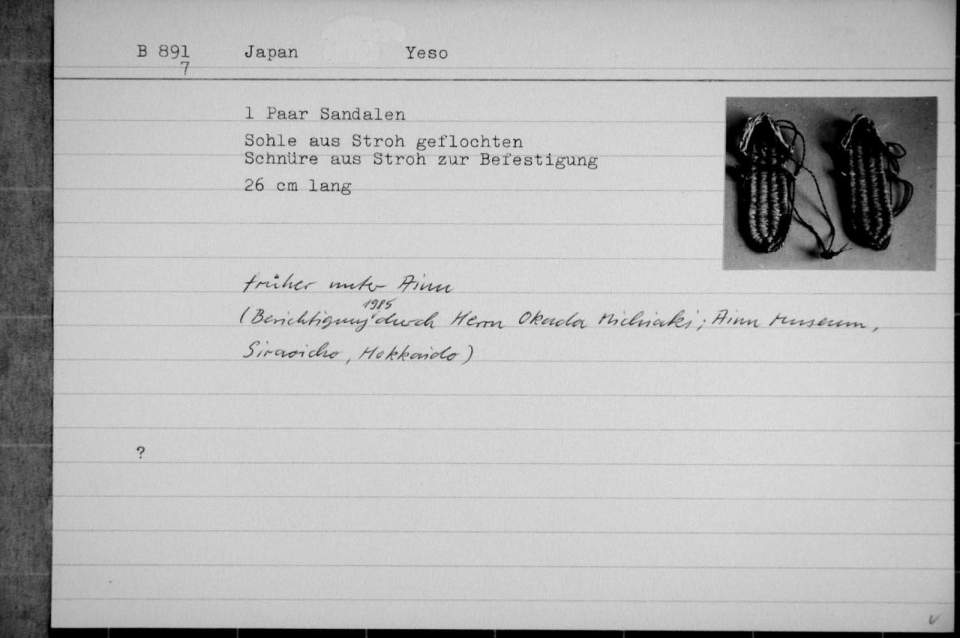 B 891 Japan Yeso
7
1 Paar Sandalen
Sohle aus Stroh geflochten
Schnüre aus Stroh zur Befestigung
26 cm lang
früher unter Ainu
1985
(Berichtigung durch Herrn Okada Michiaki; Ainu Museum,
Siraoicho, Hokkaido)
?
v